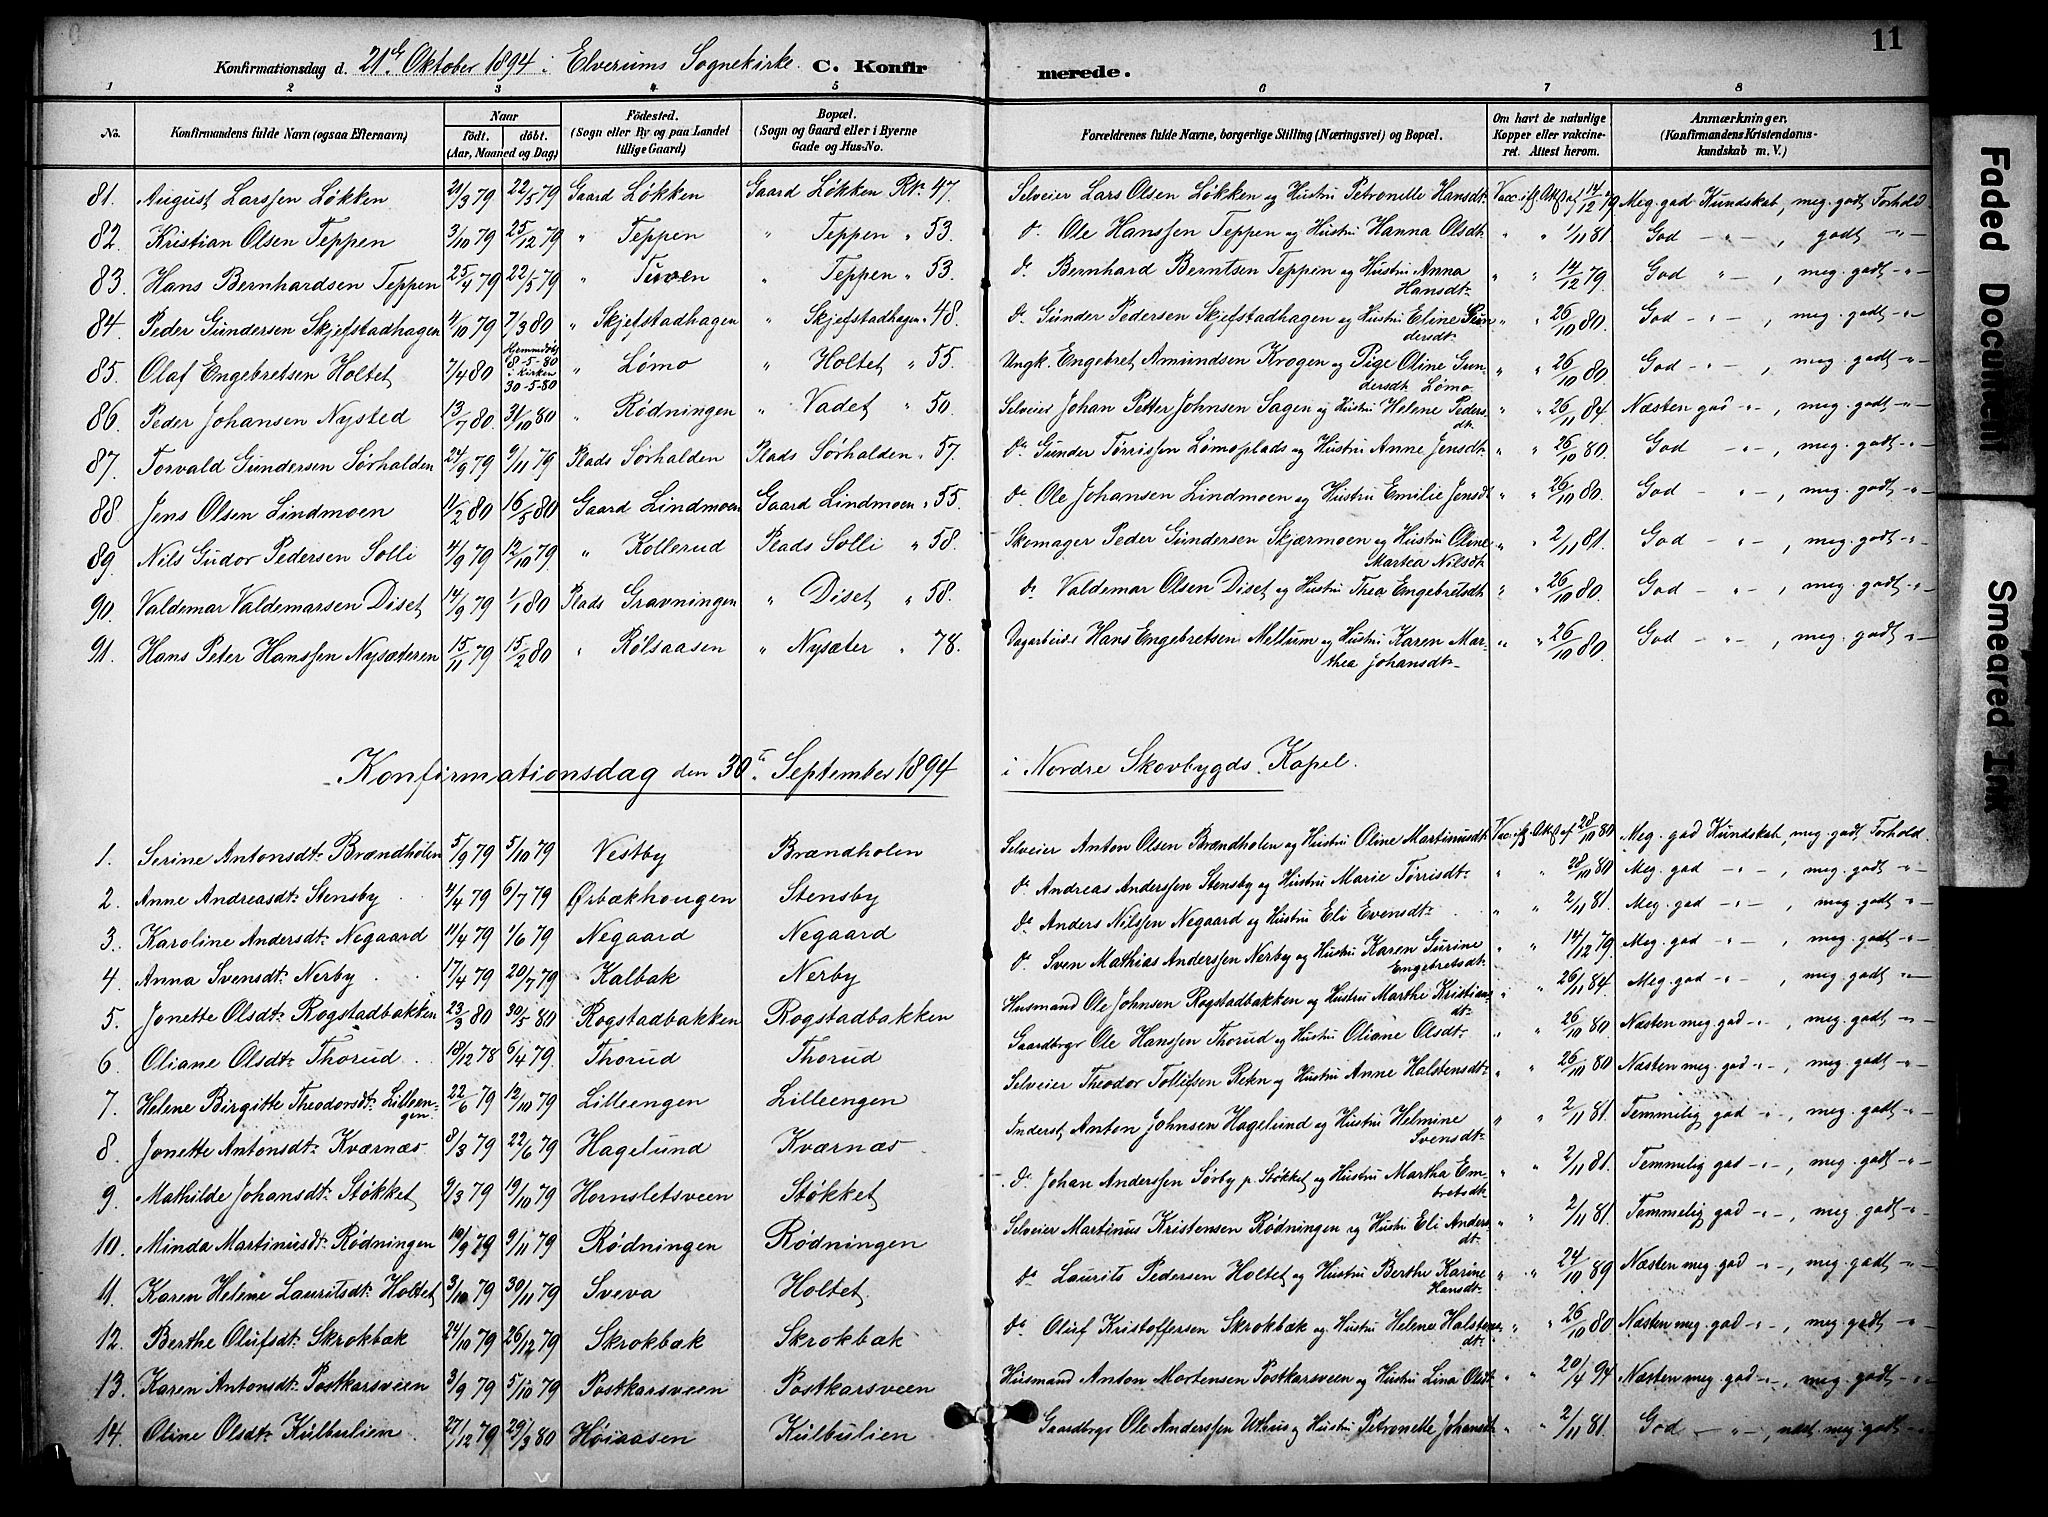 Konfirmationsdag d. 21de Oktober 1894 i Elverums Sognekirke. C. Konfirmerede. 11
1 2 3 4 5 6 7 8
No. Konfirmandens fulde Navn (ogsaa Efternavn) Naar født. døbt. (Aar, Maaned og Dag) Fødested. (Sogn eller By og paa Landet tillige Gaard) Bopæl. (Sogn og Gaard eller i Byerne Gade og Hus-No. Forældrenes fulde Navne, borgerlige Stilling (Næringsvei) og Bopæl. Om havt de naturlige Kopper eller vakcineret. Attest herom. Anmærkninger. (Konfirmandens Kristendomskundskab m. V.)
81. August Larssen Løkken 21/3 79 22/5 79 Gaard Løkken Gaard Løkken Rk. 47. Selveier Lars Olsen Løkken og Hustru Petronelle Hansdt. Vacc. ifg. Attst af 14/12 79 Meg. god Kundskab, meg. godt Forhold
82. Kristian Olsen Teppen 3/10 79 25/12 79 " Teppen " Teppen " 53. do Ole Hanssen Teppen og Hustru Hanna Olsdt. " " 1/11 81. God - " - , godt "-
83. Hans Bernhardsen Teppen 25/4 79 22/5 79 " Tuven " Teppen " 53. do Bernhard Berntsen Teppen og Hustru Anna Hansdt. " " 14/12 79. God " - , meg. godt -"-
84. Peder Gundersen Skjefstadhagen 4/10 79 7/3 80 " Skjefstadhagen " Skjefstadhagen " 48. do Gunder Pedersen Skjefstadhagen og Hustru Eline Gundersdt. " " 26/10 80. God - " - , meg. godt -"-
85. Olaf Engebretsen Holtet 7/4 80 Hjemmedøbt 8-5-80 i Kirken 30-5-80 " Lømo " Holtet " 55. Ungk. Engebret Amundsen Krogen og Pige Oline Gundersdt. Lømo " " 26/10 80. God - " - , meg. godt -"-
86. Peder Johansen Nysted 13/7 80. 31/10 80 " Rødningen " Vadet " 50. Selveier Johan Petter Johnsen Sagen og Hustru Helene Pedersdt. " " 26/11 84. Næsten god -"- , meg. godt -"-
87. Torvald Gundersen Sørhalden 24/9 79 9/11 79 Plads Sørhalden Plads Sørhalden " 57. do Gunder Tørrissen Lømoplads og Hustru Anne Jensdt. " " 26/10 80. God - " - , meg. godt -"-
88. Jens Olsen Lindmoen 11/2 80 16/5 80 Gaard Lindmoen Gaard Lindmoen " 55. do Ole Johansen Lindmoen og Hustru Emilie Jensdt " " 26/10 80. God - " - , meg. godt -"-
89. Nils Gudor Pedersen Solli 4/9 79 12/10 79. " Kollerud Plads Solli " 58. Skomager Peder Gundersen Skjærmoen og Hustru Oline Martea Nilsdt. " " 2/11 81. God - " - , meg. godt -"-
90. Valdemar Valdemarsen Diset 14/9 79 1/1 80 Plads Gravningen " Diset " 58. do Valdemar Olsen Diset og Hustru Thea Engebretsdt. " " 26/10 80. God - " - , meg. godt -"-
91. Hans Peter Hanssen Nysæteren 15/11 79 15/2 80 " Rølsaasen " Nysæter " 78. Dagarbeider Hans Engebretsen Mellum og Hustru Karen Marthea Johansdt. " " 26/10 80. God - " - , meg. godt -"-
Konfirmationsdag den 30te September 1894 i Nordre Skovbygds Kapel.
1. Serine Antonsdt. Brændholen 5/9 79 5/10 79 Vestby Brændholen Selveier Anton Olsen Brændholen og Hustru Oline Martinusdt. Vac. ifg. Attst af 28/10 80 Meg. god Kundskab, meg. godt Forhold.
2. Anne Andreasdt. Stensby 4/4 79 6/7 79 Ørbækhougen Stensby do Andreas Anderssen Stensby og Hustru Marie Tørrisdt. " " 28/10 80 Meg. god -"- , meg. godt -"-
3. Karoline Andersdt. Negaard 11/4 79 1/6 79 Negaard Negaard do Anders Nilssen Negaard og Hustru Eli Evensdt. " " 2/11 81. Meg. god -"- , meg. godt -"-
4. Anna Svensdt. Nerby 17/4 79 20/7 79 Kalbak Nerby do Sven Mathias Anderssen Nerby og Hustru Karen Gurine Engebretsdt. " " 14/12 79. Meg. god -"- , meg. godt -"-
5. Jonette Olsdt. Rogstadbakken 23/3 80 30/5 80 Rogstadbakken Rogstadbakken Husmand Ole Johnsen Rogstadbakken og Hustru Marthe Kristiansdt. " " 26/11 84. Meg. god -"- , meg. godt -"-
6. Oliane Olsdt. Thorud 18/12 78 6/4 79. Thorud Thorud Gaardbrgr Ole Hanssen Thorud og Hustru Oliane Olsdt. " " 26/10 80 Næsten meg. god -"- , meg. godt -"-
7. Helene Birgitte Theodorsdt. Lilleengen. 22/6 79 12/10 79 Lilleengen Lilleengen Selveier Theodor Tollefsen Rekn og Hustru Anne Halstensdt. " " 26/10 80 Næsten meg. god -"- , meg. godt -"-
8. Jonette Antonsdt. Kværnæs 8/3 79 22/6 79 Hagelund Kværnæs Inderst Anton Johnsen Hagelund og Hustru Helmine Svensdt. " " 2/11 81. Temmelig god -"- , meg. godt -"-
9. Mathilde Johansdt. Støkket 9/3 79 19/10 79 Hornsletsveen Støkket do Johan Anderssen Sørby p. Støkket og Hustru Martha Embretsdt. " " 2/11 81. Temmelig god -"- , meg. godt -"-
10. Minda Martinusdt. Rødningen 10/9 79 9/11 79 Rødningen Rødningen Selveier Martinus Kristensen Rødningen og Hustru Eli Andersdt. " " 2/11 81. Temmelig god -"- , meg. godt -"-
11. Karen Helene Lauritsdt. Holtet 3/10 79 30/11 79 Sveva Holtet do Laurits Pedersen Holtet og Hustru Berthe Karine Hansdt. " " 24/10 89 Næsten meg. god -"- , meg. godt -"-
12. Berthe Olufsdt. Skrokbæk 24/10 79 26/12 79 Skrokbæk Skrokbæk do Oluf Kristoffersen Skrokbæk og Hustru Helene Halstensdt. " " 26/10 80 Næsten meg. god -"- , meg. godt -"-
13. Karen Antonsdt. Postkarsveen 3/9 79 5/10 79 Postkarsveen Postkarsveen Husmand Anton Mortensen Postkarsveen og Hustru Lina Olsdt. " " 20/4 94 Næsten meg. god -"- , meg. godt -"-
14. Oline Olsdt. Kulbulien 27/12 79 29/3 80 Høiaasen Kulbulien Gaardbrgr Ole Anderssen Uthus og Hustru Petronelle Johansdt. " " 2/11 81. God - " - , næst. meg. godt -"-
Faded Document
Smeared Ink